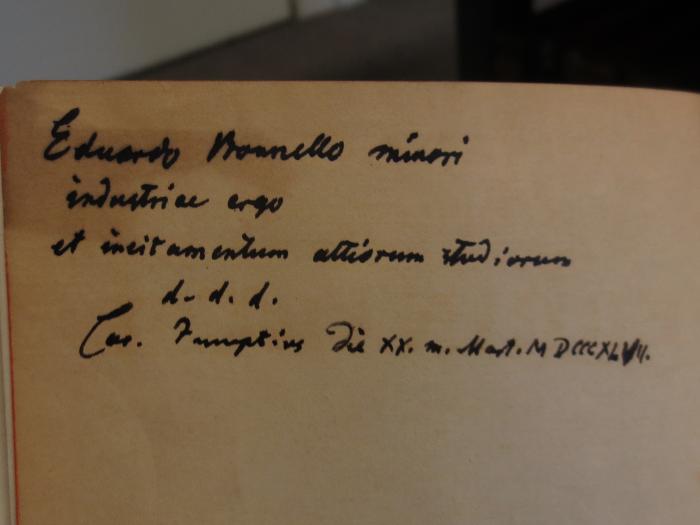 Eduardo Bonnello minori
industriae ergo
et incitamentum altiorum studiorum
d. d. d.
Car. Zumptius die XX. m. Mart. MDCCCXLVII.